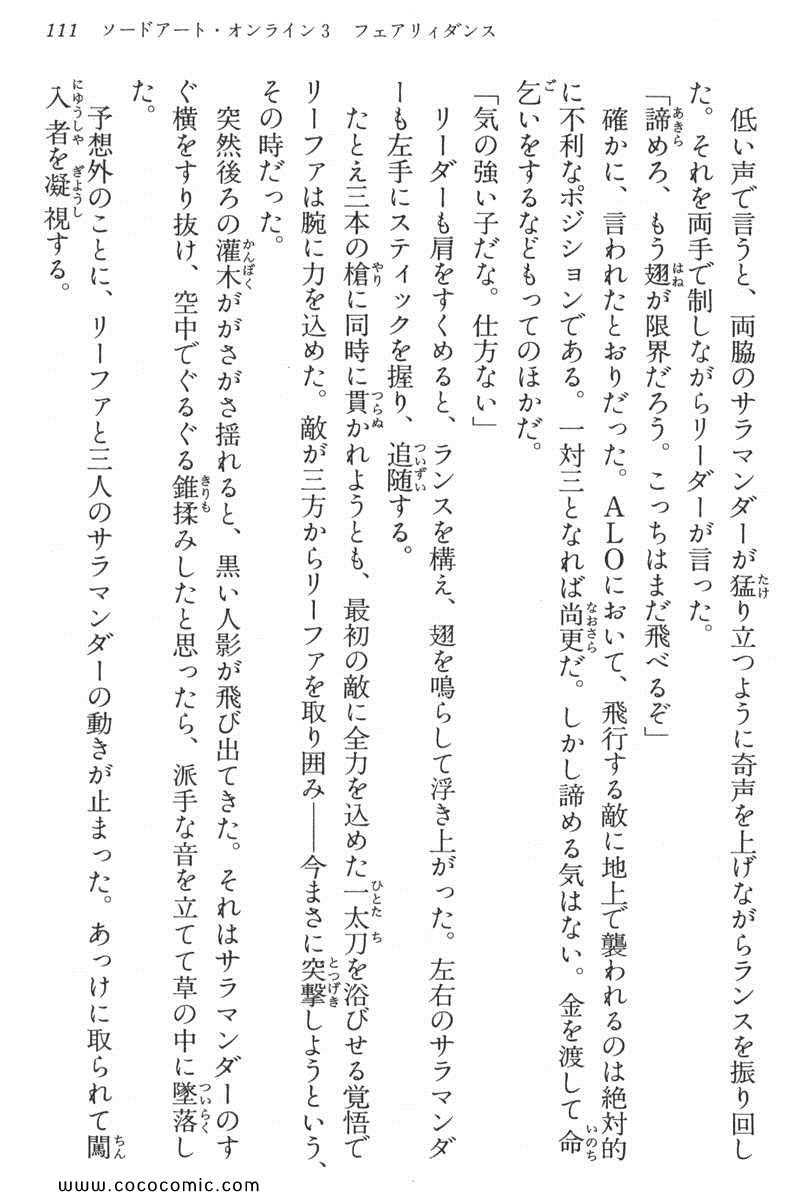 111　ソードアート・オンライン3　フェアリィダンス
　低い声で言うと、両脇のサラマンダーが猛り立つように奇声を上げながらランスを振り回し
た。それを両手で制しながらリーダーが言った。
「諦めろ、もう翅が限界だろう。こっちはまだ飛べるぞ」
　確かに、言われたとおりだった。ＡＬＯにおいて、飛行する敵に地上で襲われるのは絶対的
に不利なポジションである。一対三となれば尚更だ。しかし諦める気はない。金を渡して命
乞いをするなどもってのほかだ。
「気の強い子だな。仕方ない」
　リーダーも肩をすくめると、ランスを構え、翅を鳴らして浮き上がった。左右のサラマンダ
ーも左手にスティックを握り、追随する。
　たとえ三本の槍に同時に貫かれようとも、最初の敵に全力を込めた一太刀を浴びせる覚悟で
リーファは腕に力を込めた。敵が三方からリーファを取り囲み――今まさに突撃しようという、
その時だった。
　突然後ろの灌木ががさがさ揺れると、黒い人影が飛び出てきた。それはサラマンダーのす
ぐ横をすり抜け、空中でぐるぐる錐揉みしたと思ったら、派手な音を立てて草の中に墜落し
た。
　予想外のことに、リーファと三人のサラマンダーの動きが止まった。あっけに取られて闖
入者を凝視する。
www.cococomic.com